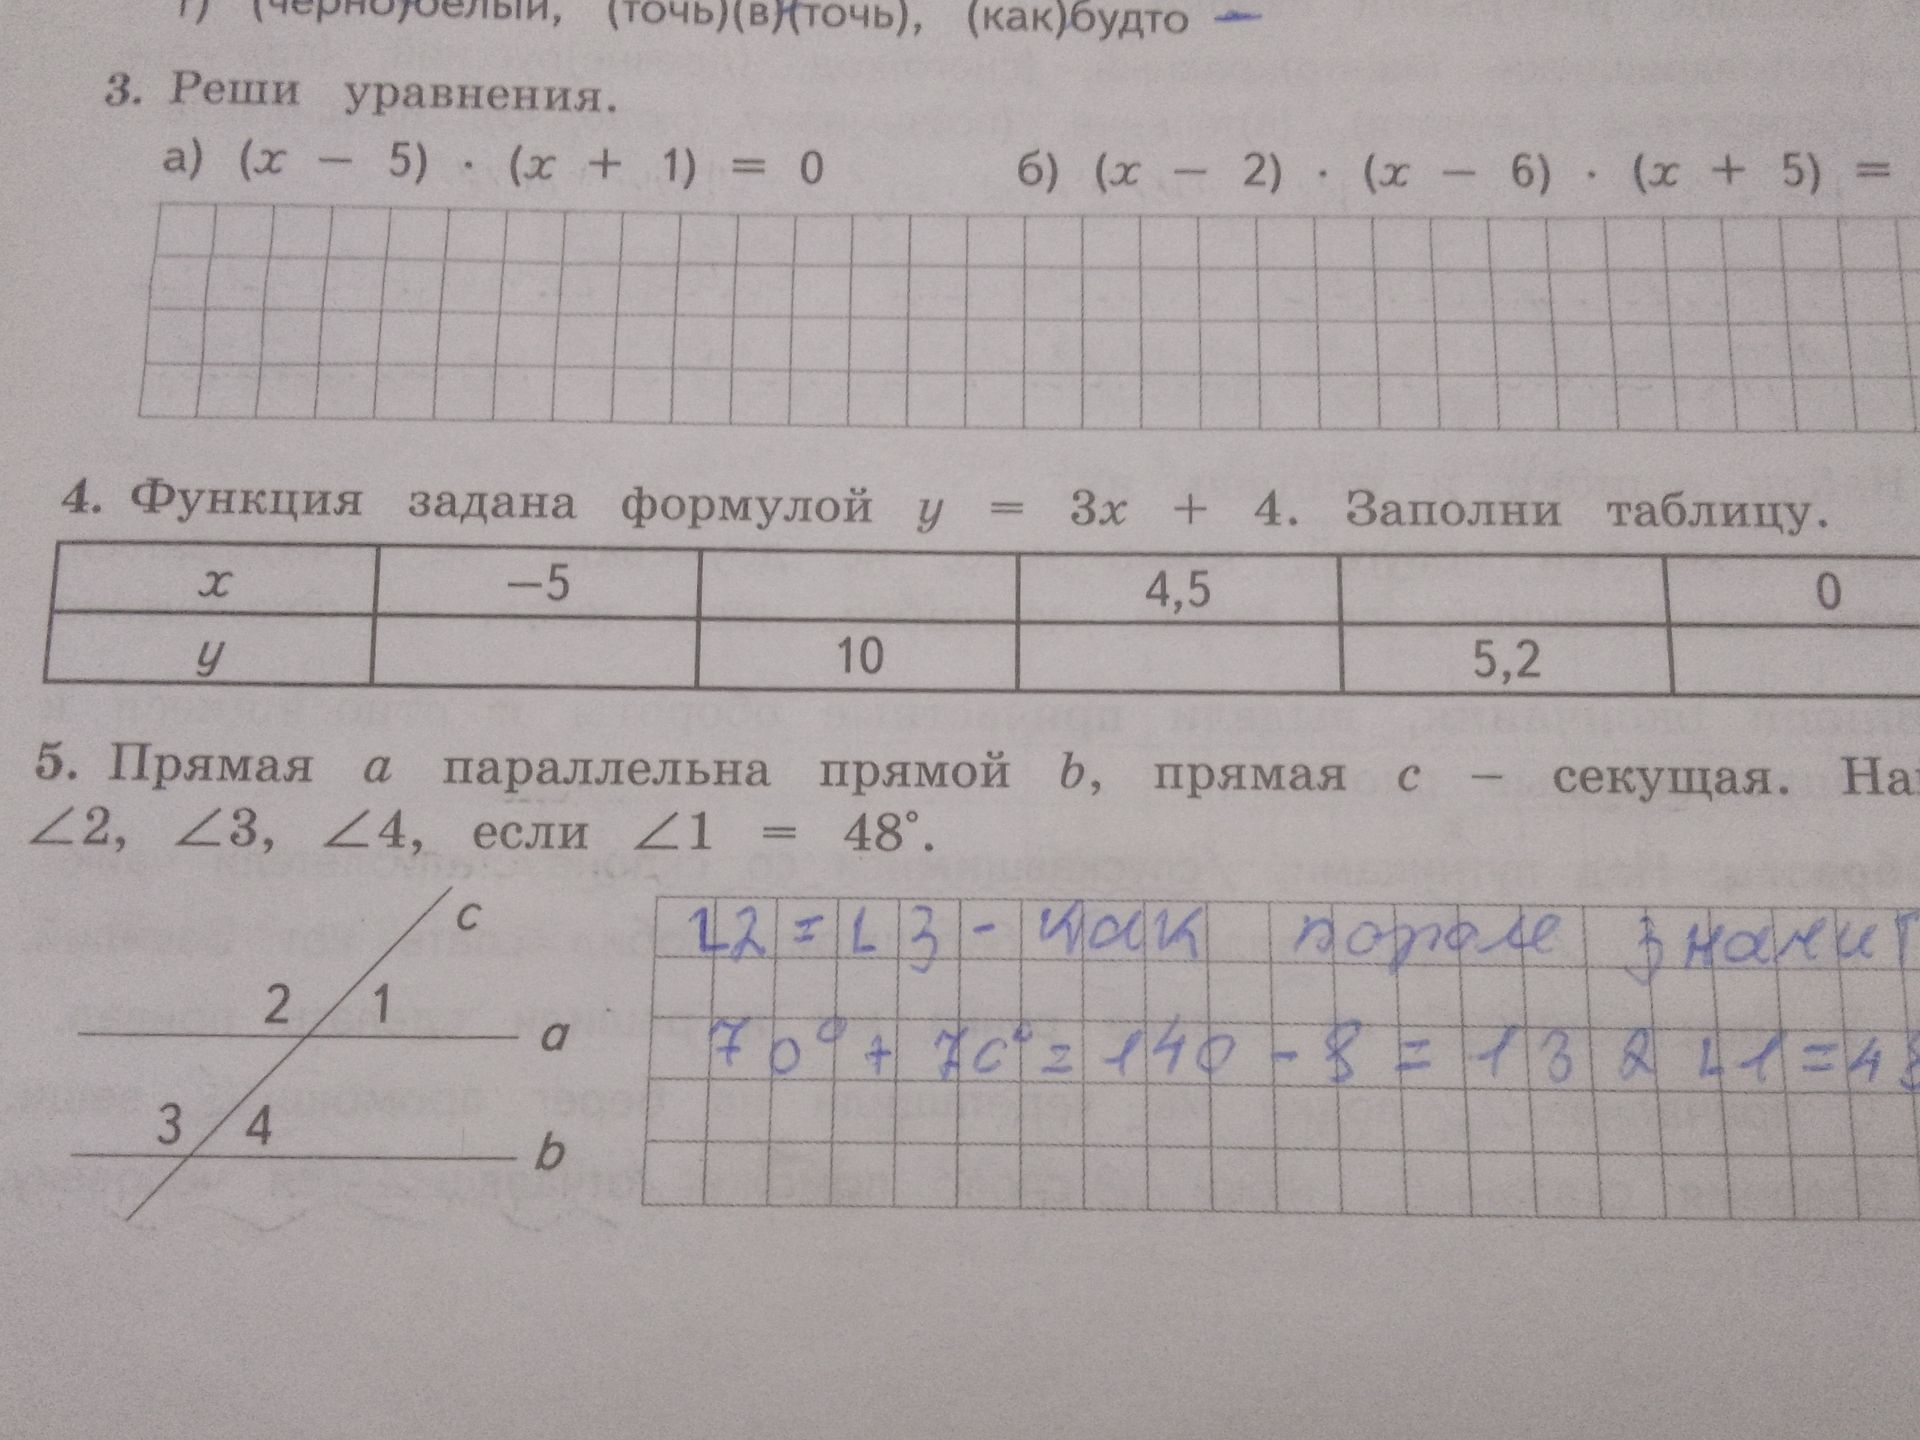 г) (черно)белый, (точь)(в)(точь), (как)будто –
3. Реши уравнения.
а) (x − 5) · (x + 1) = 0
б) (x − 2) · (x − 6) · (x + 5) =
4. Функция задана формулой y = 3x + 4. Заполни таблицу.
x −5 4,5 0
y 10 5,2
5. Прямая a параллельна прямой b, прямая c – секущая. На
∠2, ∠3, ∠4, если ∠1 = 48°.
c
2 1
a
3 4
b
∠2 = ∠3 - как значит
70° + 70° = 140 - 8 = 132 ∠1 = 48